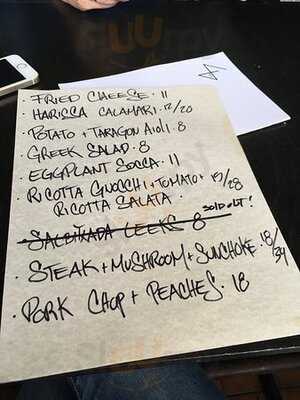 · FRIED CHEESE · 11
· HARISSA CALAMARI · 12/20
· POTATO + TARAGON AIOLI · 8
· GREEK SALAD · 8
· EGGPLANT SOCCA · 11
· RICOTTA GNOCCHI + TOMATO + 19/28
RICOTTA SALATA ·
SOLD OUT!
LEEKS 8
· STEAK + MUSHROOM + SUNCHOKE · 18/34
· PORK CHOP + PEACHES · 18